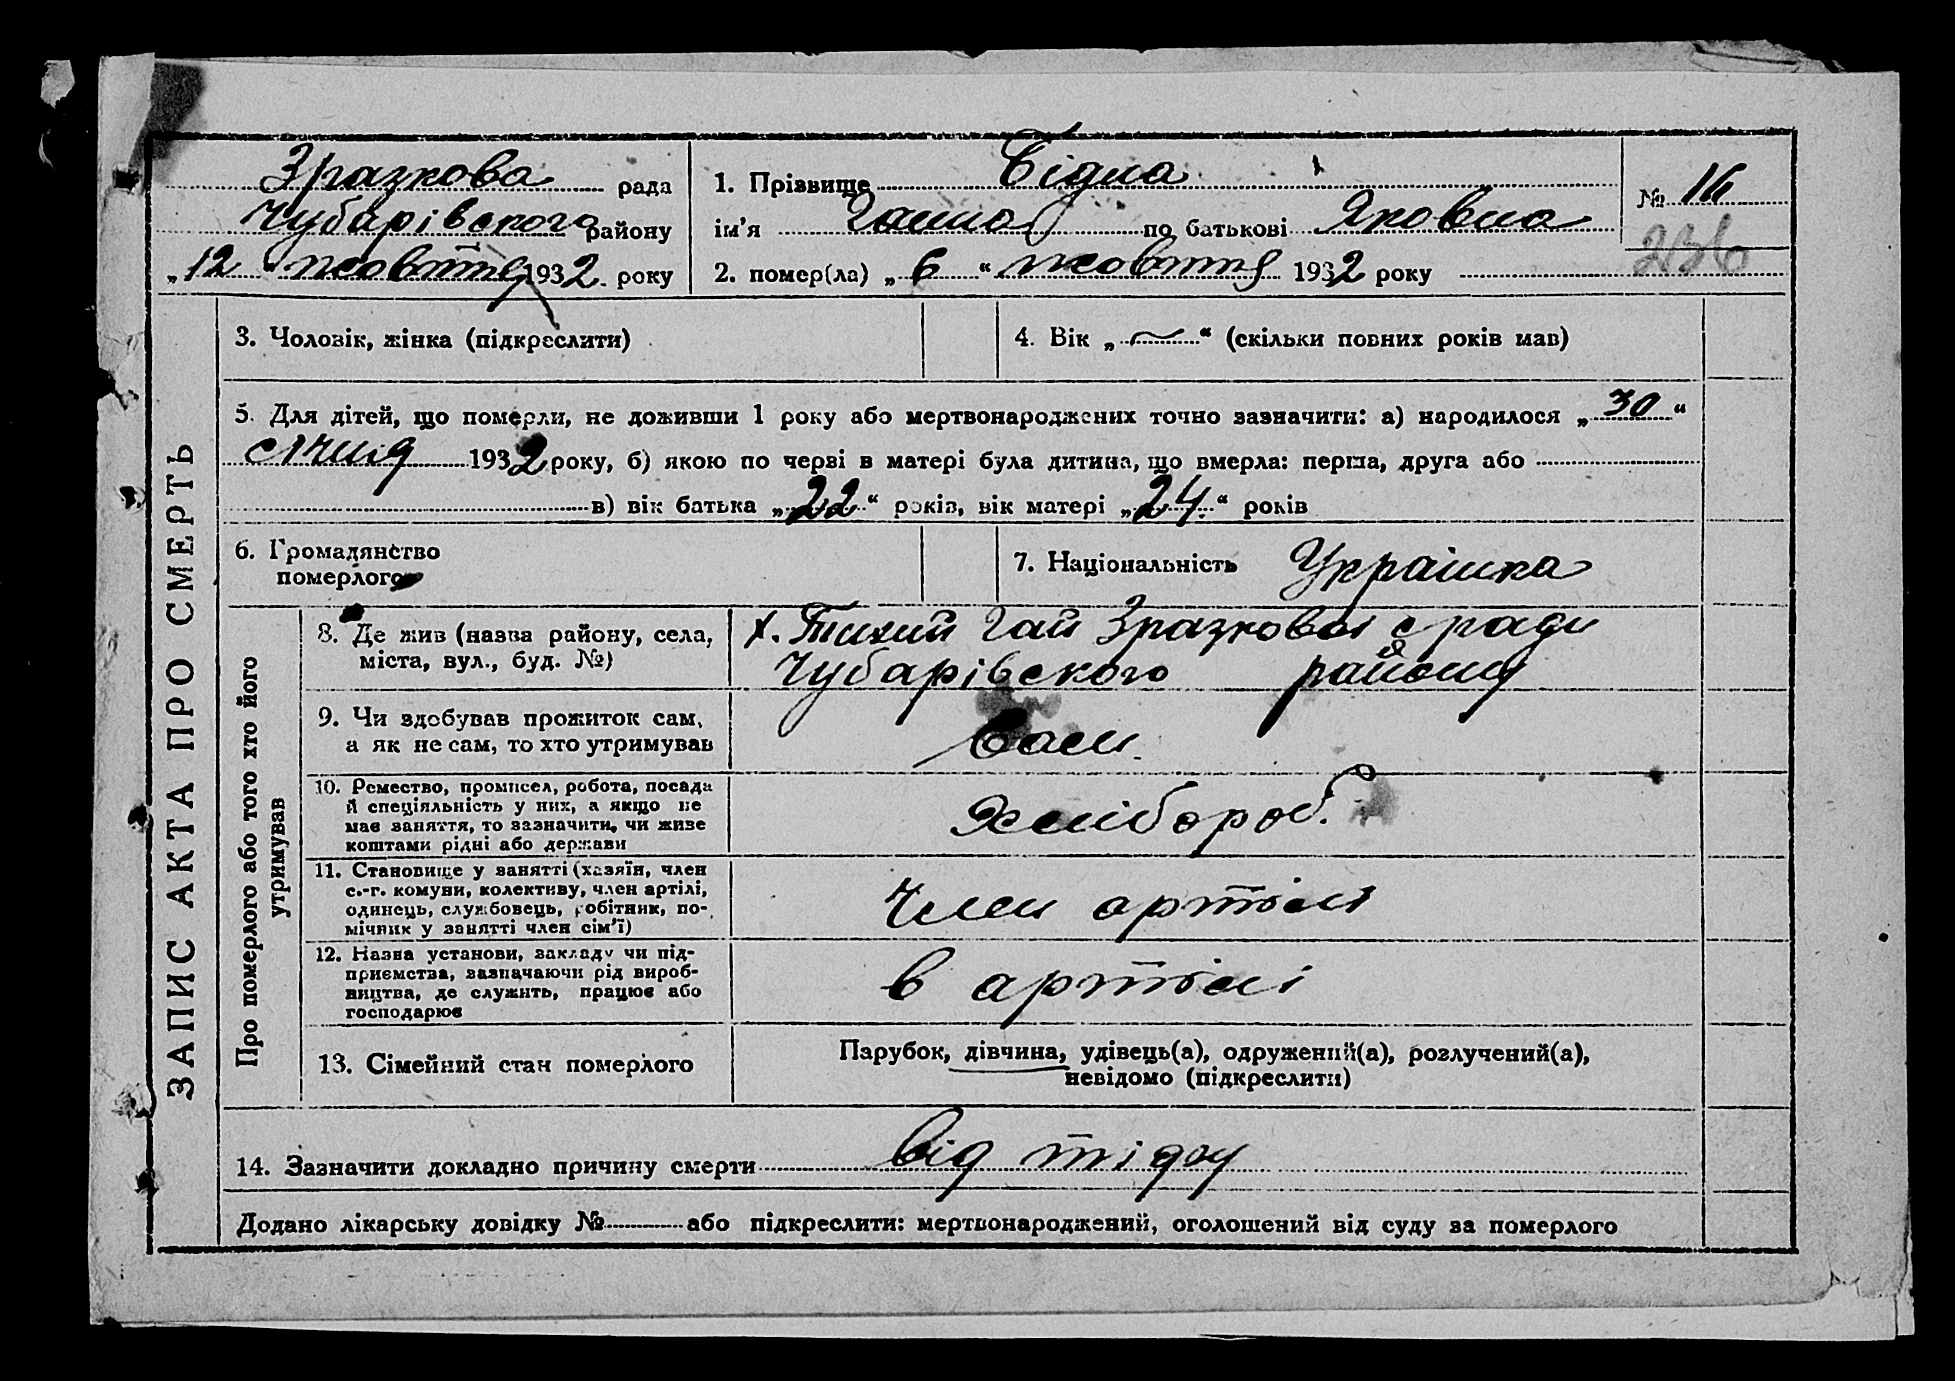 Зразкова рада
Чубарівського району
„12 жовтня 1932 року
1. Прізвище Бідна
ім'я Ганна по батькові Яковна
2. помер(ла) „6" жовтня 1932 року
№ 16
236
ЗАПИС АКТА ПРО СМЕРТЬ
3. Чоловік, жінка (підкреслити)
4. Вік „ — " (скільки повних років мав)
5. Для дітей, що померли, не доживши 1 року або мертвонароджених точно зазначити: а) народилося „30"
січня 1932 року, б) якою по черві в матері була дитина, що вмерла: перша, друга або
в) вік батька „22" років, вік матері „24" років
6. Громадянство
померлого
7. Національність Українка
Про померлого або того хто його
утримував
8. Де жив (назва району, села,
міста, вул., буд. №)
х. Тихий Гай Зразкової с ради
Чубарівського району
9. Чи здобував прожиток сам,
а як не сам, то хто утримував
Сам
10. Ремество, промисел, робота, посада
й спеціяльність у них, а якщо не
має заняття, то зазначити, чи живе
коштами рідні або держави
Хлібороб.
11. Становище у занятті (хазяїн, член
с.-г. комуни, колективу, член артілі,
одинець, службовець, робітник, по-
мічник у занятті член сім'ї)
Член артілі
12. Назва установи, закладу чи під-
приємства, зазначаючи рід вироб-
ництва, де служить, працює або
господарює
в артілі
13. Сімейний стан померлого
Парубок, дівчина, удівець(а), одружений(а), розлучений(а),
невідомо (підкреслити)
14. Зазначити докладно причину смерти від
Додано лікарську довідку № або підкреслити: мертвонароджений, оголошений від суду за померлого